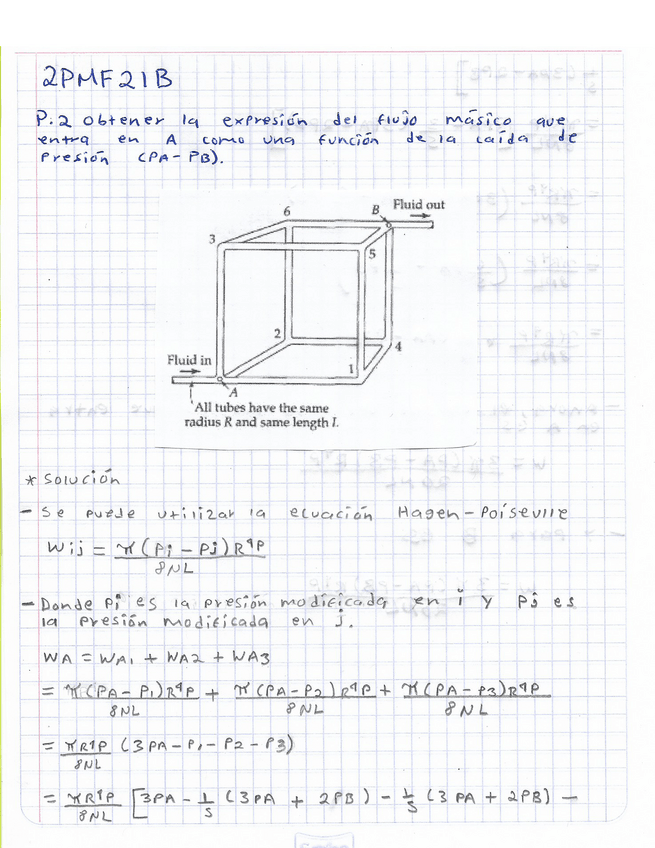 2PMF21B
P.2 obtener la expresión del flujo másico que
entra en A como una función de la caída de
Presión (PA-PB).
6
B
Fluid out
3
5
2
4
Fluid in
1
A
All tubes have the same
radius R and same length l.
* Solución
- Se puede utilizar la ecuación Hagen-Poiseville
Wij = π(Pi - Pj)R⁴ρ / 8NL
- Donde Pi es la presión modificada en i y Pj es
la presión modificada en j.
WA = WA1 + WA2 + WA3
= π(PA-P1)R⁴ρ / 8NL + π(PA-P2)R⁴ρ / 8NL + π(PA-P3)R⁴ρ / 8NL
= πR⁴ρ / 8NL (3PA-P1-P2-P3)
= πR⁴ρ / 8NL [3PA - 1/5 (3PA + 2PB) - 1/5 (3PA + 2PB) -